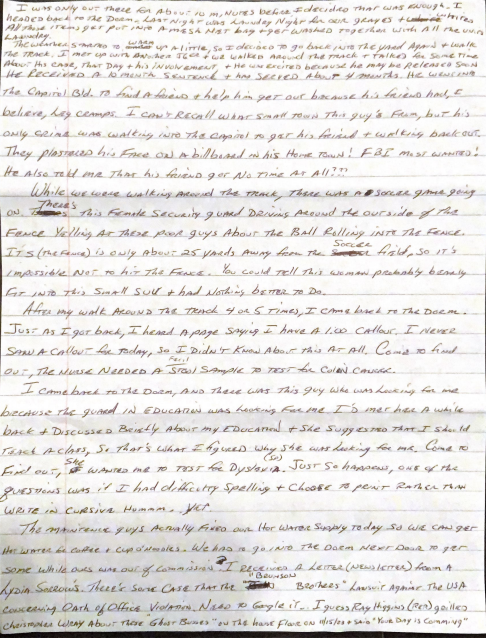 I was only out there for about 10 minutes before I decided that was enough. I
headed back to the Dorm. Last night was Laundry Night for our grayes + whites
All those items get put into a mesh net bag + get washed together with all the units
Laundry.
The weather started to warm up a little, so I decided to go back into the yard again + walk
the track. I met up with another J6er + we walked around the track + talked for some time
about his case, that day + his involvement + he was excited because he may be released soon
He received a 10 month sentence + has served about 4 months. He went into
the Capitol Bld. to find a friend + help him get out because his friend had, I
believe, leg cramps. I can't recall what small town this guy's from, but his
only crime was walking into the Capitol to get his friend + walking back out.
They plastered his face on a billboard in his home town! FBI most wanted!
He also told me that his friend got no time at all?!!
While we were walking around the track, there was a soccer game going
on. There's this female security guard driving around the outside of the
fence yelling at these poor guys about the ball rolling into the fence.
It's (the fence) is only about 25 yards away from the soccer field, so it's
impossible not to hit the fence. You could tell this woman probably barely
fit into this small SUV + had nothing better to do.
After my walk around the track 4 or 5 times, I came back to the Dorm.
Just as I got back, I heard a page saying I have a 1:00 callout. I never
saw a callout for today, so I didn't know about this at all. Come to find
out, the nurse needed a stool sample to test for colon cancer.
I came back to the Dorm, and there was this guy who was looking for me
because the guard in education was looking for me I'd met her a while
back + discussed briefly about my education + she suggested that I should
teach a class, so that's what I figured why she was looking for me. Come to
find out, she wanted me to test for Dyslexia. Just so happens, one of the
questions was if I had difficulty spelling + choose to print rather than
write in cursive Hummm. Yep.
The maintence guys actually fixed our hot water supply today so we can get
hot water for coffee + cup o'noodles. We had to go into the Dorm next door to get
some while ours was out of commission. I received a letter (newsletter) from a
Lydia There's some case that the "Brunson Brothers" lawsuit against the USA
concerning Oath of Office violation. Need to Google it.. I guess Ray Higgins (Rep) grilled
Christopher Wray about these "Ghost Buses" on the house floor on + said "Your Day is Coming"